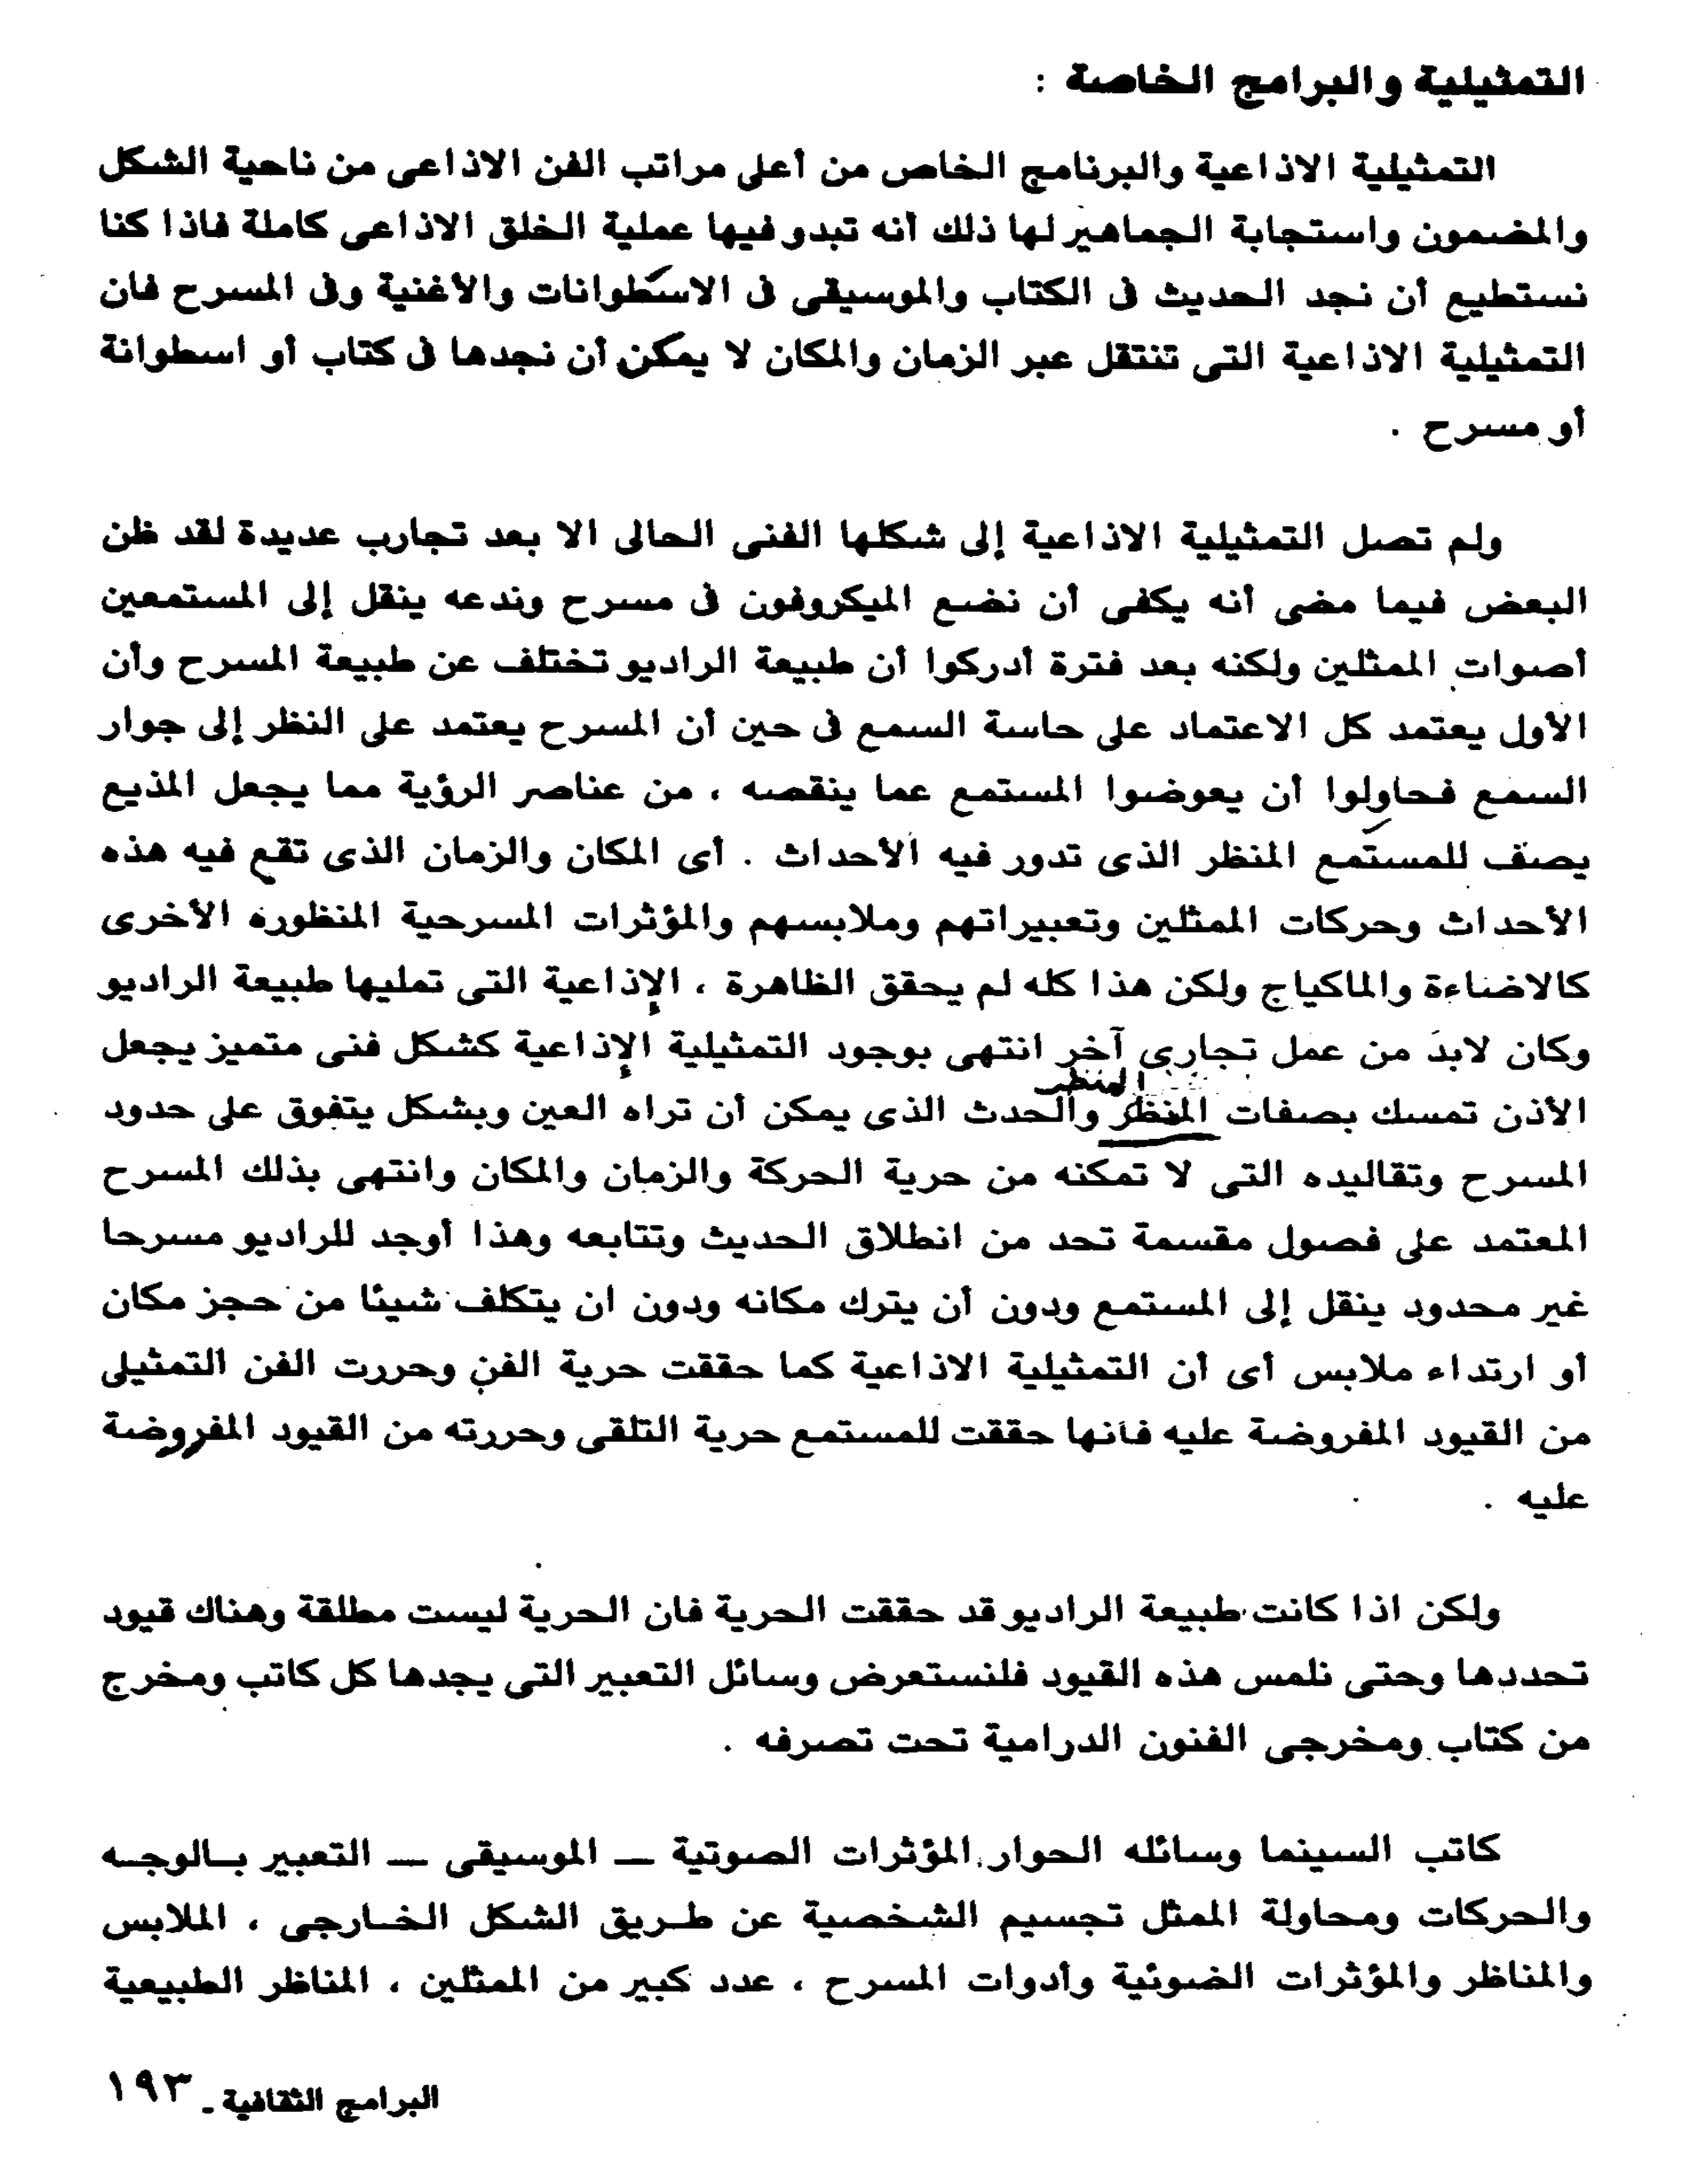 التمثيلية والبرامج الخاصة :
التمثيلية الاذاعية والبرنامج الخاص من أعلى مراتب الفن الاذاعى من ناحية الشكل
والمضمون واستجابة الجماهير لها ذلك أنه تبدو فيها عملية الخلق الاذاعى كاملة فاذا كنا
نستطيع أن نجد الحديث فى الكتاب والموسيقى فى الاسطوانات والأغنية وفى المسرح فان
التمثيلية الاذاعية التى تنتقل عبر الزمان والمكان لا يمكن أن نجدها فى كتاب أو اسطوانة
أو مسرح .
ولم تصل التمثيلية الاذاعية إلى شكلها الفنى الحالى الا بعد تجارب عديدة لقد ظن
البعض فيما مضى أنه يكفى أن نضع الميكروفون فى مسرح وندعه ينقل إلى المستمعين
أصوات الممثلين ولكنه بعد فترة أدركوا أن طبيعة الراديو تختلف عن طبيعة المسرح وأن
الأول يعتمد كل الاعتماد على حاسة السمع فى حين أن المسرح يعتمد على النظر إلى جوار
السمع فحاولوا أن يعوضوا المستمع عما ينقصه ، من عناصر الرؤية مما يجعل المذيع
يصف للمستمع المنظر الذى تدور فيه الأحداث . أى المكان والزمان الذى تقع فيه هذه
الأحداث وحركات الممثلين وتعبيراتهم وملابسهم والمؤثرات المسرحية المنظوره الأخرى
كالاضاءة والماكياج ولكن هذا كله لم يحقق الظاهرة ، الإذاعية التى تمليها طبيعة الراديو
وكان لابد من عمل تجارى آخر انتهى بوجود التمثيلية الإذاعية كشكل فنى متميز يجعل
المنظر
الأذن تمسك بصفات المنظر والحدث الذى يمكن أن تراه العين وبشكل يتفوق على حدود
المسرح وتقاليده التى لا تمكنه من حرية الحركة والزمان والمكان وانتهى بذلك المسرح
المعتمد على فصول مقسمة تحد من انطلاق الحديث وتتابعه وهذا أوجد للراديو مسرحا
غير محدود ينقل إلى المستمع ودون أن يترك مكانه ودون ان يتكلف شيئا من حجز مكان
أو ارتداء ملابس أى أن التمثيلية الاذاعية كما حققت حرية الفن وحررت الفن التمثيلى
من القيود المفروضة عليه فانها حققت للمستمع حرية التلقى وحررته من القيود المفروضة
عليه .
ولكن اذا كانت طبيعة الراديو قد حققت الحرية فان الحرية ليست مطلقة وهناك قيود
تحددها وحتى نلمس هذه القيود فلنستعرض وسائل التعبير التى يجدها كل كاتب ومخرج
من كتاب ومخرجى الفنون الدرامية تحت تصرفه .
كاتب السينما وسائله الحوار المؤثرات الصوتية — الموسيقى — التعبير بالوجه
والحركات ومحاولة الممثل تجسيم الشخصية عن طريق الشكل الخارجى ، الملابس
والمناظر والمؤثرات الضوئية وأدوات المسرح ، عدد كبير من الممثلين ، المناظر الطبيعية
البرامج الثقافية - ١٩٣